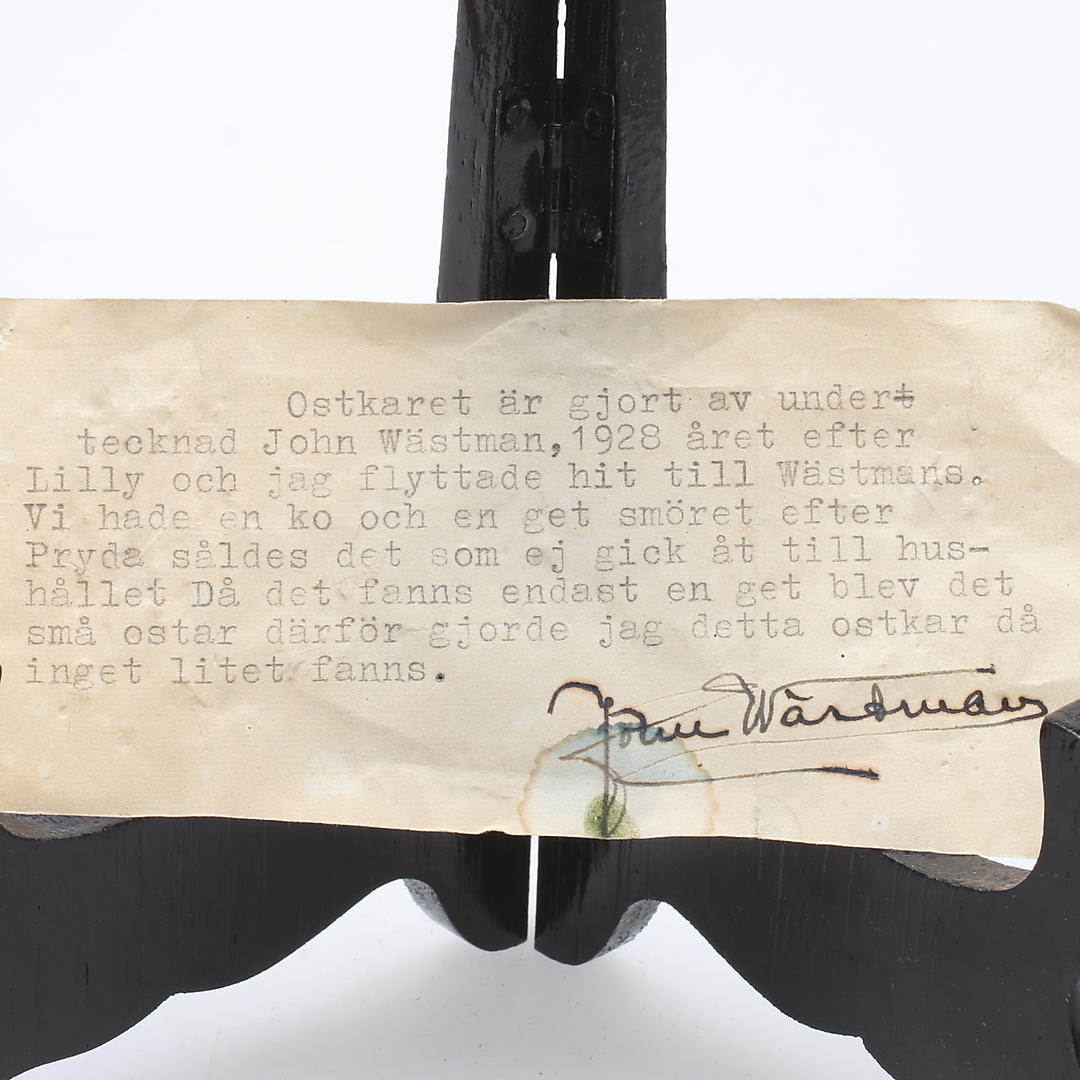 Ostkaret är gjort av undert
tecknad John Wästman,1928 året efter
Lilly och jag flyttade hit till Wästmans.
Vi hade en ko och en get smöret efter
Pryda såldes det som ej gick åt till hus-
hållet Då det fanns endast en get blev det
små ostar därför gjorde jag detta ostkar då
inget litet fanns.
John Wästman